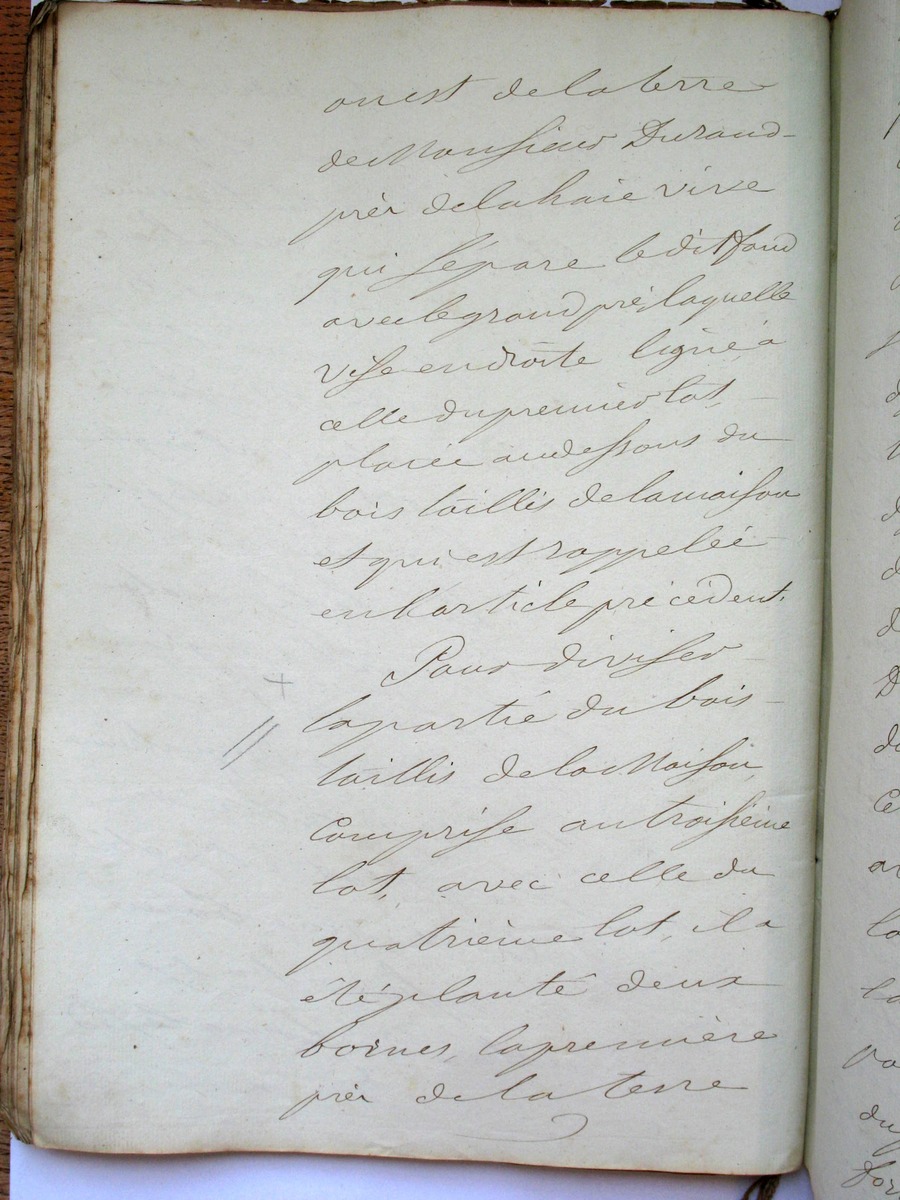 ouest de la terre
de Monsieur Durand
près de la haie vive
qui sépare ledit fond
avec le grand pré, laquelle
vise en droite ligne à
celle du premier lot,
placée au dessous du
bois taillis de la maison
et qui est rappelée
en l'article précédent.
Pour diviser
la partie du bois
taillis de la Maison,
Comprise au troisième
lot, avec celle du
quatrième lot, il a
été planté deux
bornes, la première
près de la terre